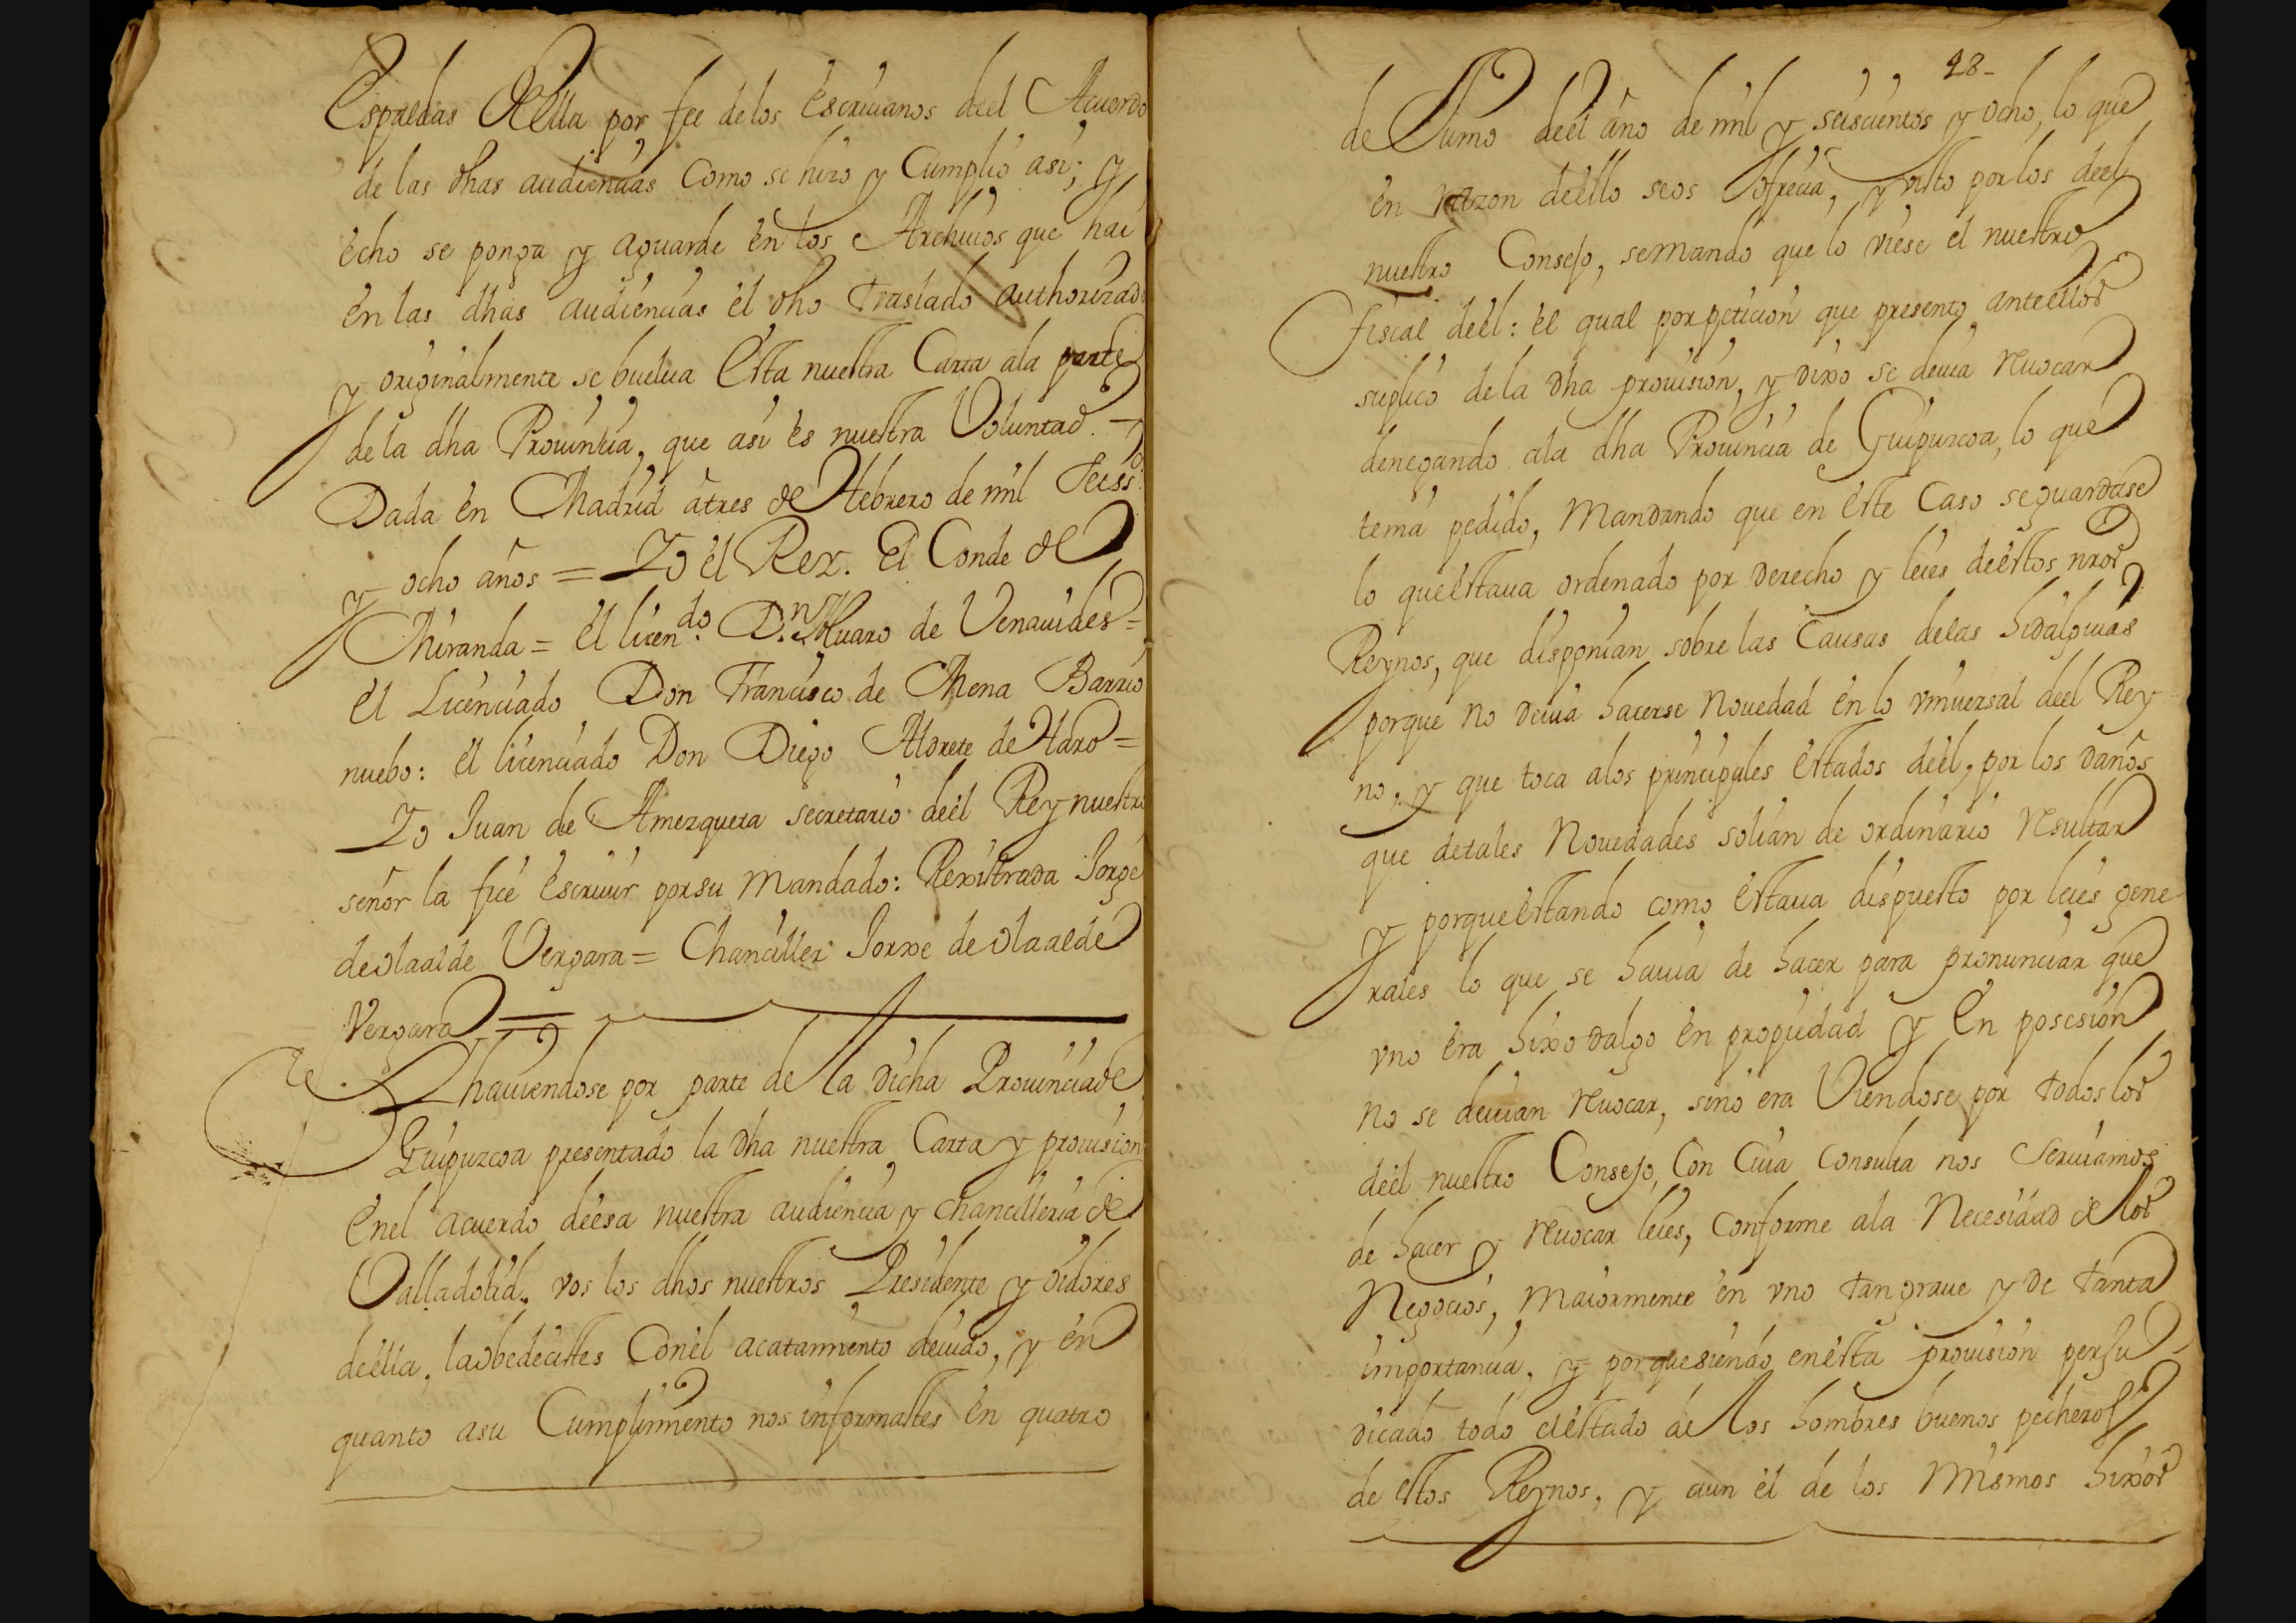 Espaldas della por fee de los escriuanos deel Acuerdo
de las dhas audiencias como se hizo y Cumplio asi; y
echo se ponga y aguarde en los Archiuos que hai
en las dhas audiencias el dho traslado authorizado
y originalmente se buelua esta nuestra Carta ala parte
de la dha Prouinçia, que asi es nuestra Voluntad.
Dada en Madrid a tres de Febrero de mil Seiss.
y ocho años = Yo el Rey. El Conde de
Miranda = el licen.do D.n Aluaro de Venauides =
el Licenciado Don Francisco de Mena Barrio
nuebo: el licenciado Don Diego Aldrete de Haro =
Yo Juan de Amezqueta secretario deel Rey nuestro
señor la fice escriuir por su mandado: Rexistrada Jorge
de olaalde Vergara = Chanciller Jorxe de olaalde
Vergara =
E hauiendose por parte de la dicha Prouincia de
Guipuzcoa presentado la dha nuestra Carta y prouision
enel acuerdo deesa nuestra audiencia y chancilleria de
Valladolid, vos los dhos nuestros Presidente y oidores
deella, la obedecistes Con el acatamiento deuido, y en
quanto asu Cumplimiento nos informastes en quatro
28-
de Junio deel año de mil y seiscientos y ocho, lo que
en razon deello seos ofrecia, y visto por los deel
nuestro Consejo, se mando que lo viese el nuestro
fiscal deel: el qual por peticion que presento ante ellos
suplico de la dha prouision, y dixo se deuia reuocar
denegando ala dha Prouincia de Guipuzcoa, lo que
tenia pedido, Mandando que en este Caso se guardase
lo que estaua ordenado por derecho y leies deestos nros
Reynos, que disponian sobre las Causas de las hidalguias
porque no deuia hacerse Nouedad en lo vniuersal deel Rey
no, y que toca alos principales estados deel, por los daños
que de tales Nouedades solian de ordinario resultar
y porque estando como estaua dispuesto por leies gene
rales lo que se hauia de hacer para pronunciar que
vno era hixo dalgo en propiedad y en posesion
no se deuian reuocar, sino era Viendose por todos los
deel nuestro Consejo, Con Cuia Consulta nos Seruiamos
de hacer y reuocar leies, conforme ala Necesidad de los
Negocios, maiormente en vno tan graue y de tanta
importancia, y porque siendo en esta prouision perju
dicado todo el estado de los hombres buenos pecheros
de estos Reynos, y aun el de los Mismos hixos